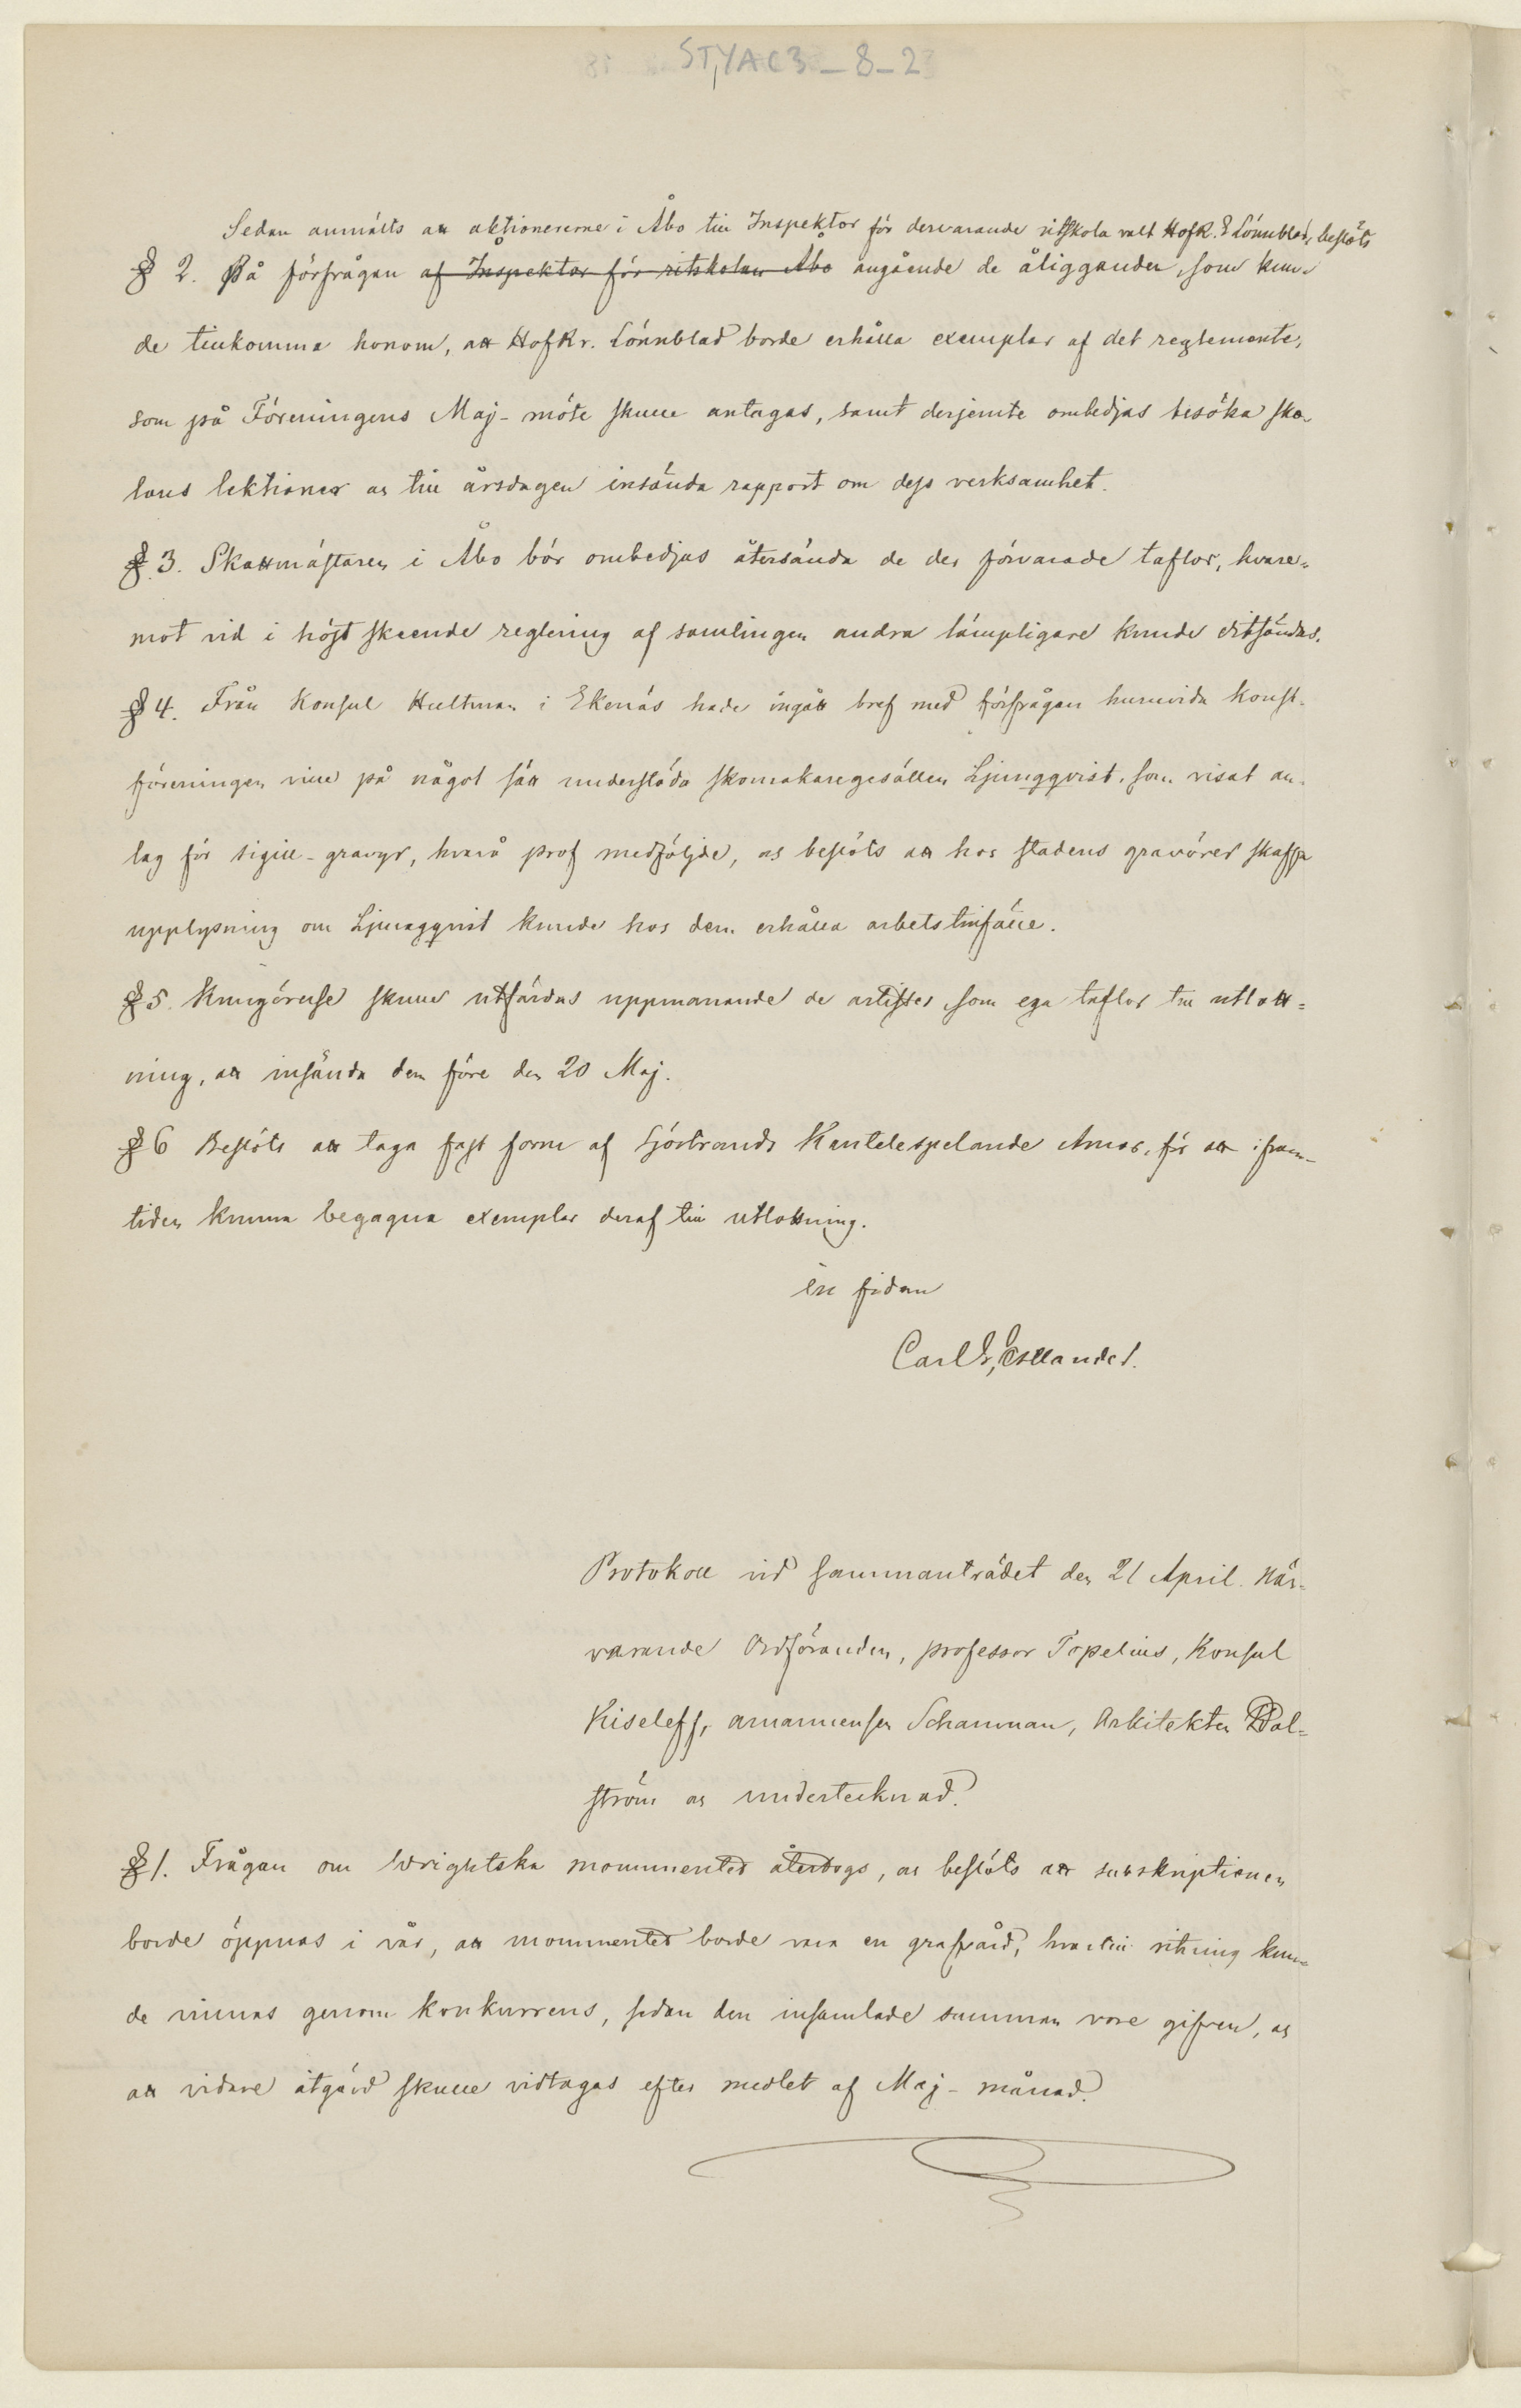 STYAC3_8_2
Sedan anmälts att aktionererne i Åbo till Inspektor för dervarande ritskola valt HofR. E Lönnblad, beslöts
§ 2. På förfrågan af Inspektor för ritskolan Åbo angående de åligganden, som kun-
de tillkomma honom, att HofKr. Lönnblad borde erhålla exemplar af det reglemente,
som på Föreningens Maj-möte skulle antagas, samt derjemte ombedjas besöka sko-
lans lektioner och till årsdagen insända rapport om dess verksamhet.
§ 3. Skattmästaren i Åbo bör ombedjas återsända de der förvarade taflor, hvare-
mot vid i höst skeende reglering af samlingen andra lämpligare kunde ditsändas.
§ 4. Från Konsul Hultman i Ekenäs hade ingått bref med förfrågan huruvida Konst-
föreningen ville på något sätt understöda skomakaregesällen Ljungqvist, som visat an-
lag för sigill-gravyr, hvarå prof medföljde, och beslöts att hos stadens gravörer skaffa
upplysning om Ljungqvist kunde hos dem erhålla arbetstillfälle.
§ 5. Kungörelse skulle utfärdas uppmanande de artister, som ega taflor till utlott=
ning, att insända dem före den 20 Maj.
§ 6 Beslöts att taga fast form af Sjöstrands Kantelespelande Amor, för att i fram-
tiden kunna begagna exemplar deraf till utlottning.
in fidem
Carl G, Estlander.
Protokoll vid sammanträdet den 21 April. När-
varande Ordföranden, professor Topelius, Konsul
Kiseleff, amanuensen Schauman, Arkitekten Dal=
ström och undertecknad.
§ 1. Frågan om Wrightska monumentet återtogs, och beslöts att subskriptionen
borde öppnas i vår, att monumentet borde vara en grafvård, hvartill ritning kun-
de vinnas genom konkurrens, sedan den insamlade summan vore gifven, och
att vidare åtgärd skulle vidtagas efter medlet af Maj-månad.